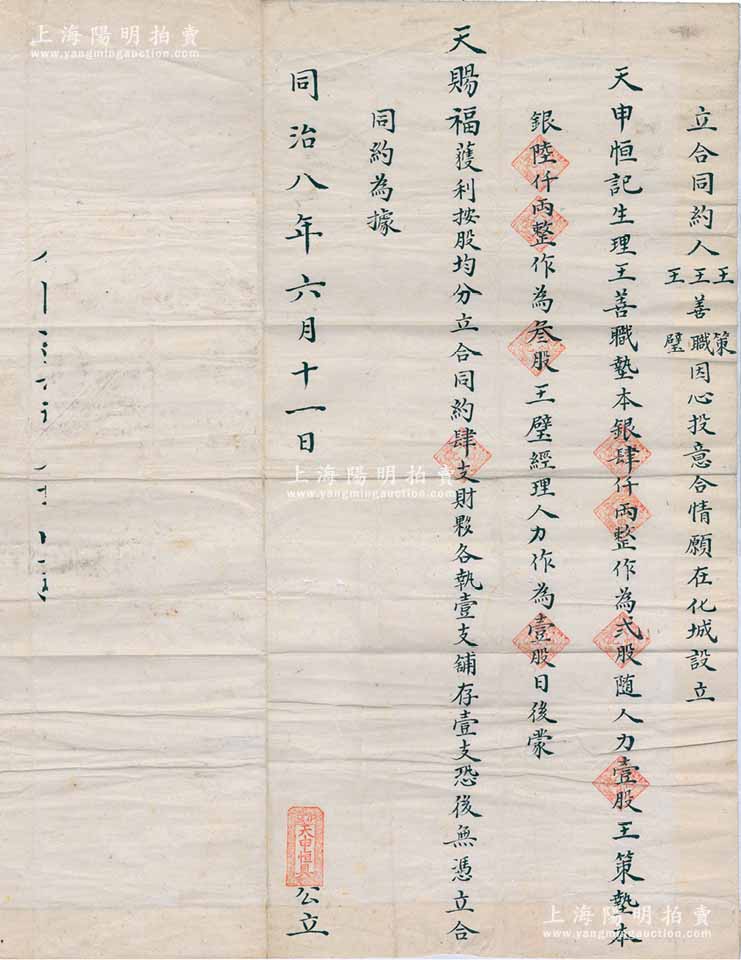 立合同約人王策王善職王璧因心投意合情願在化城設立
天申恒記生理王善職墊本銀肆仟両整作為弍股随人力壹股王策墊本
銀陸仟両整作為叄股王璧經理人力作為壹股日後蒙
天賜福獲利按股均分立合同約肆支財夥各執壹支舖存壹支恐後無憑立合
同約為據
同治八年六月十一日
天申恒具
公立
上海陽明拍賣
www.yangmingauction.com
上海陽明拍賣
www.yangmingauction.com
上海陽明拍賣
www.yangmingauction.com